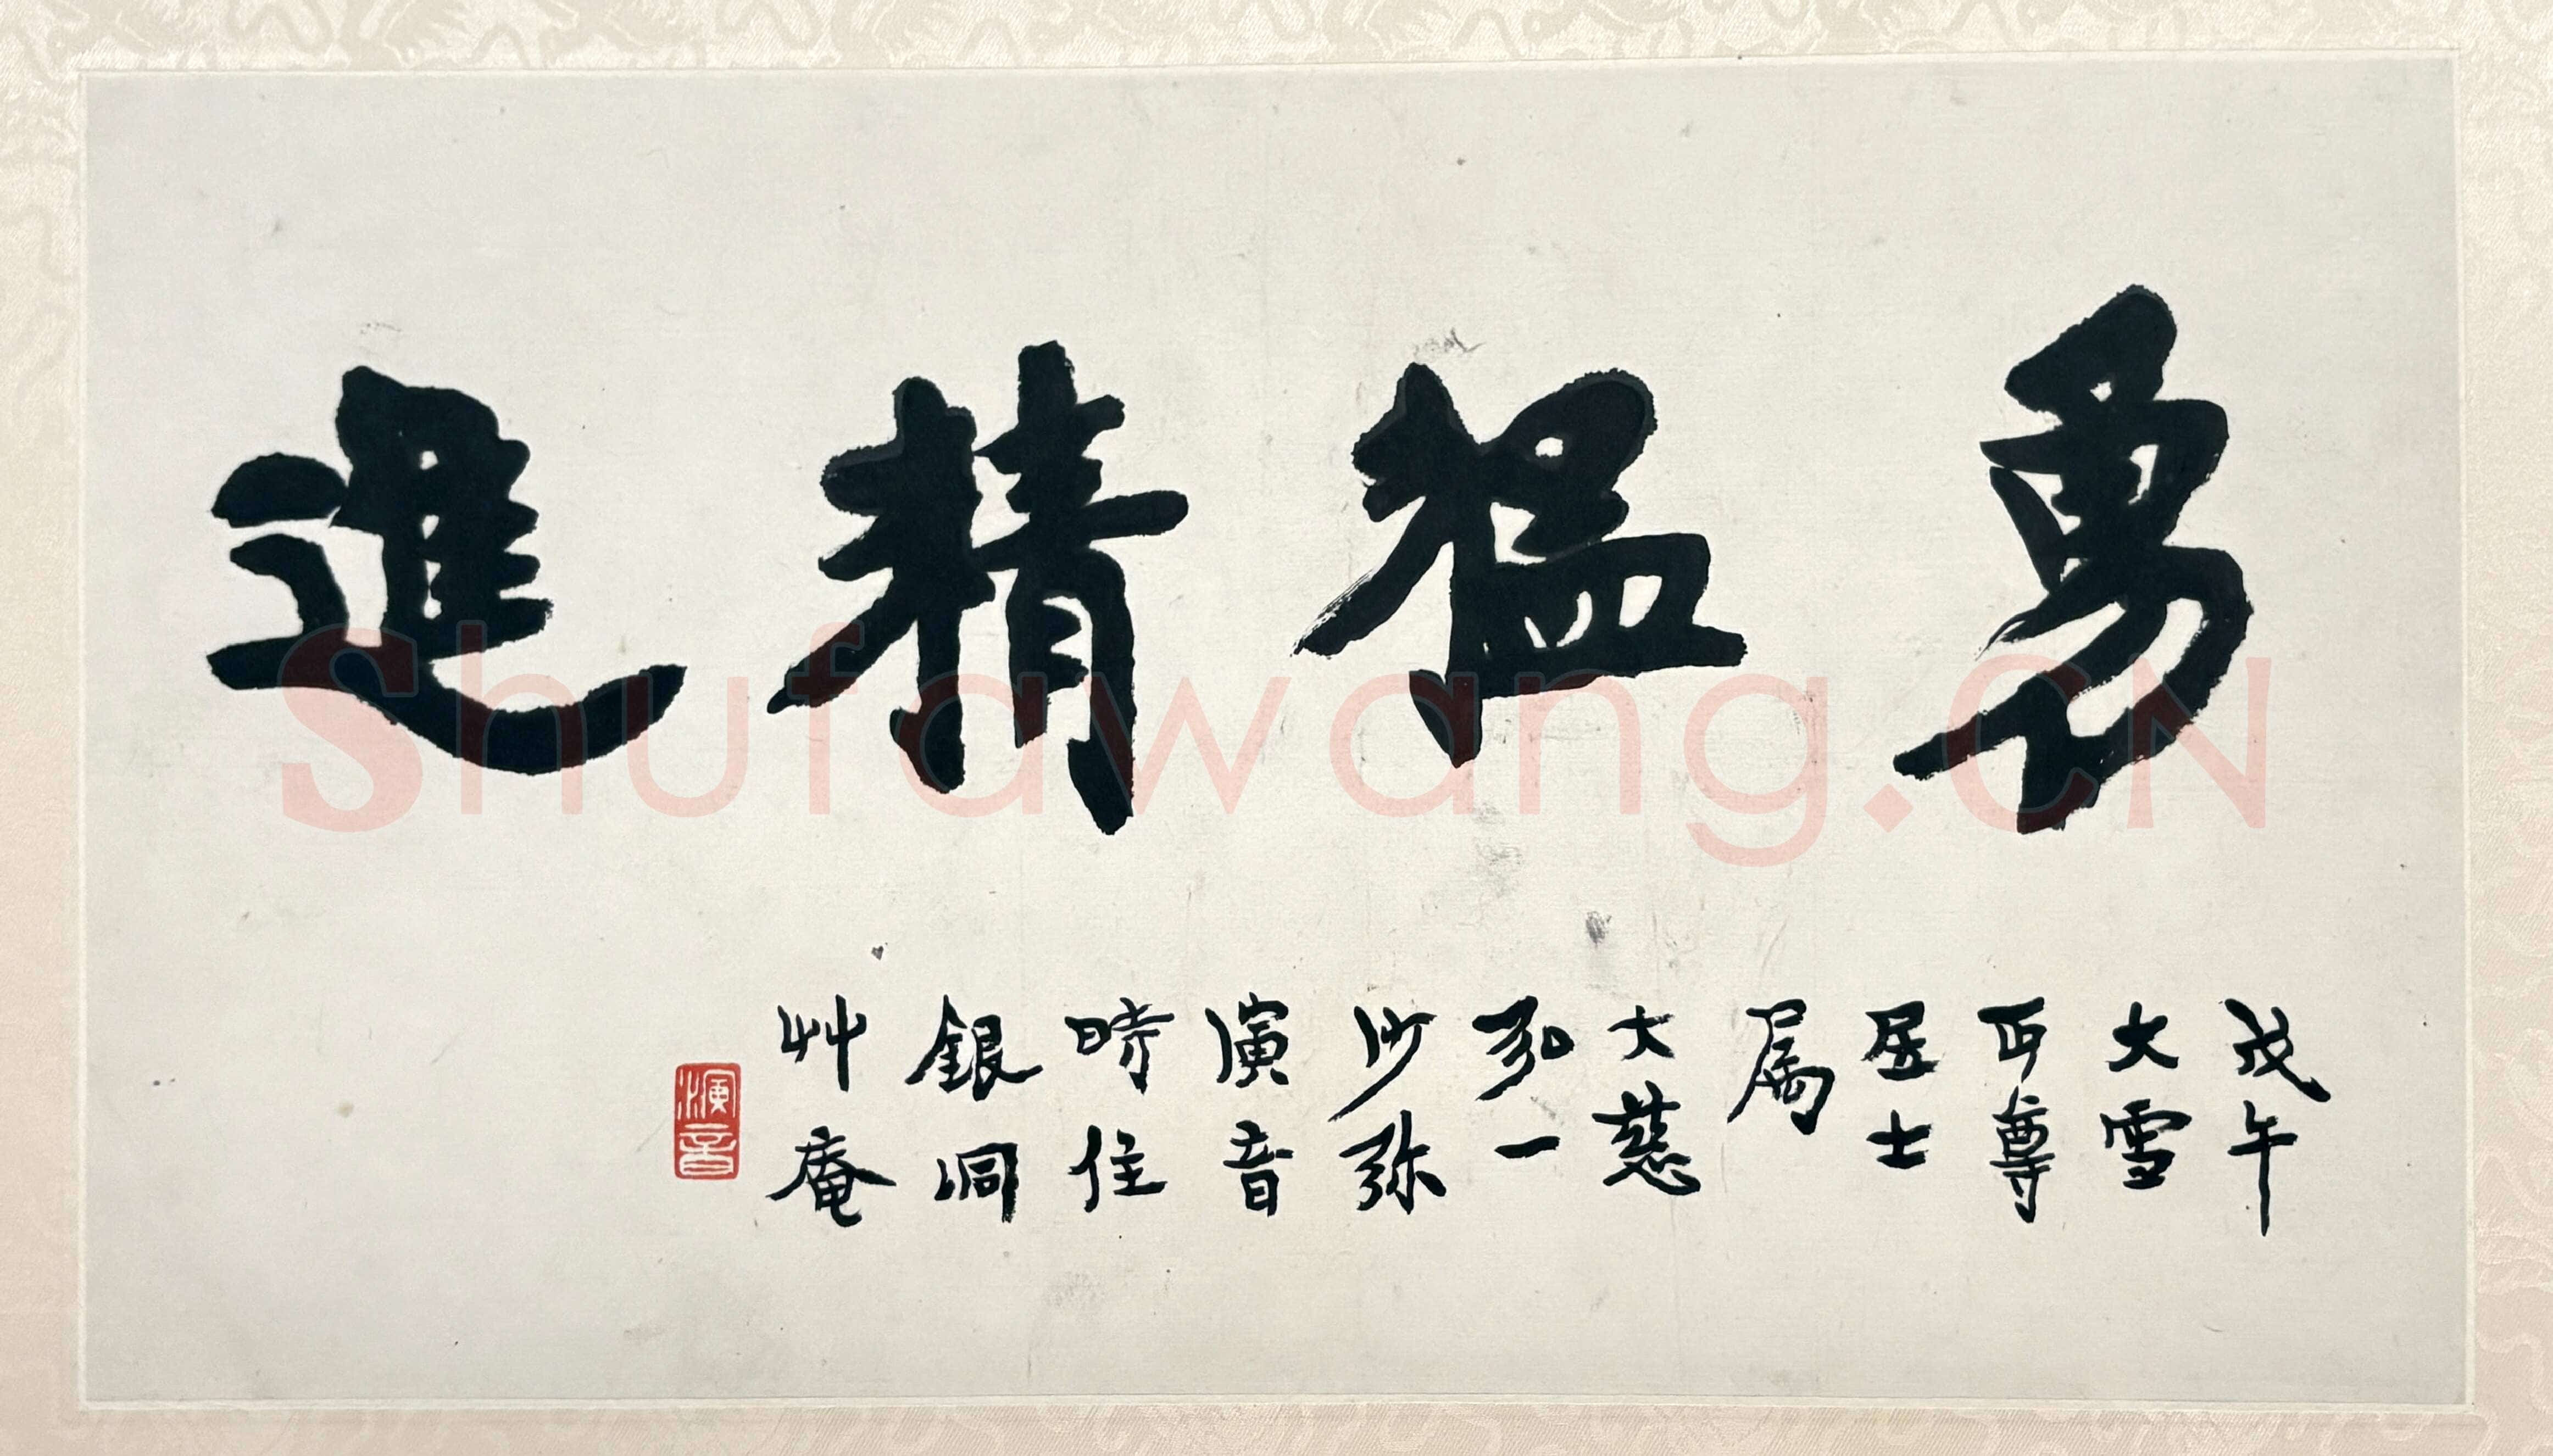 勇猛精進
戊午
大雪
丏尊
居士
属
大慈
弘一
沙弥
演音
時住
銀洞
艸庵
演音
Shufawang.CN